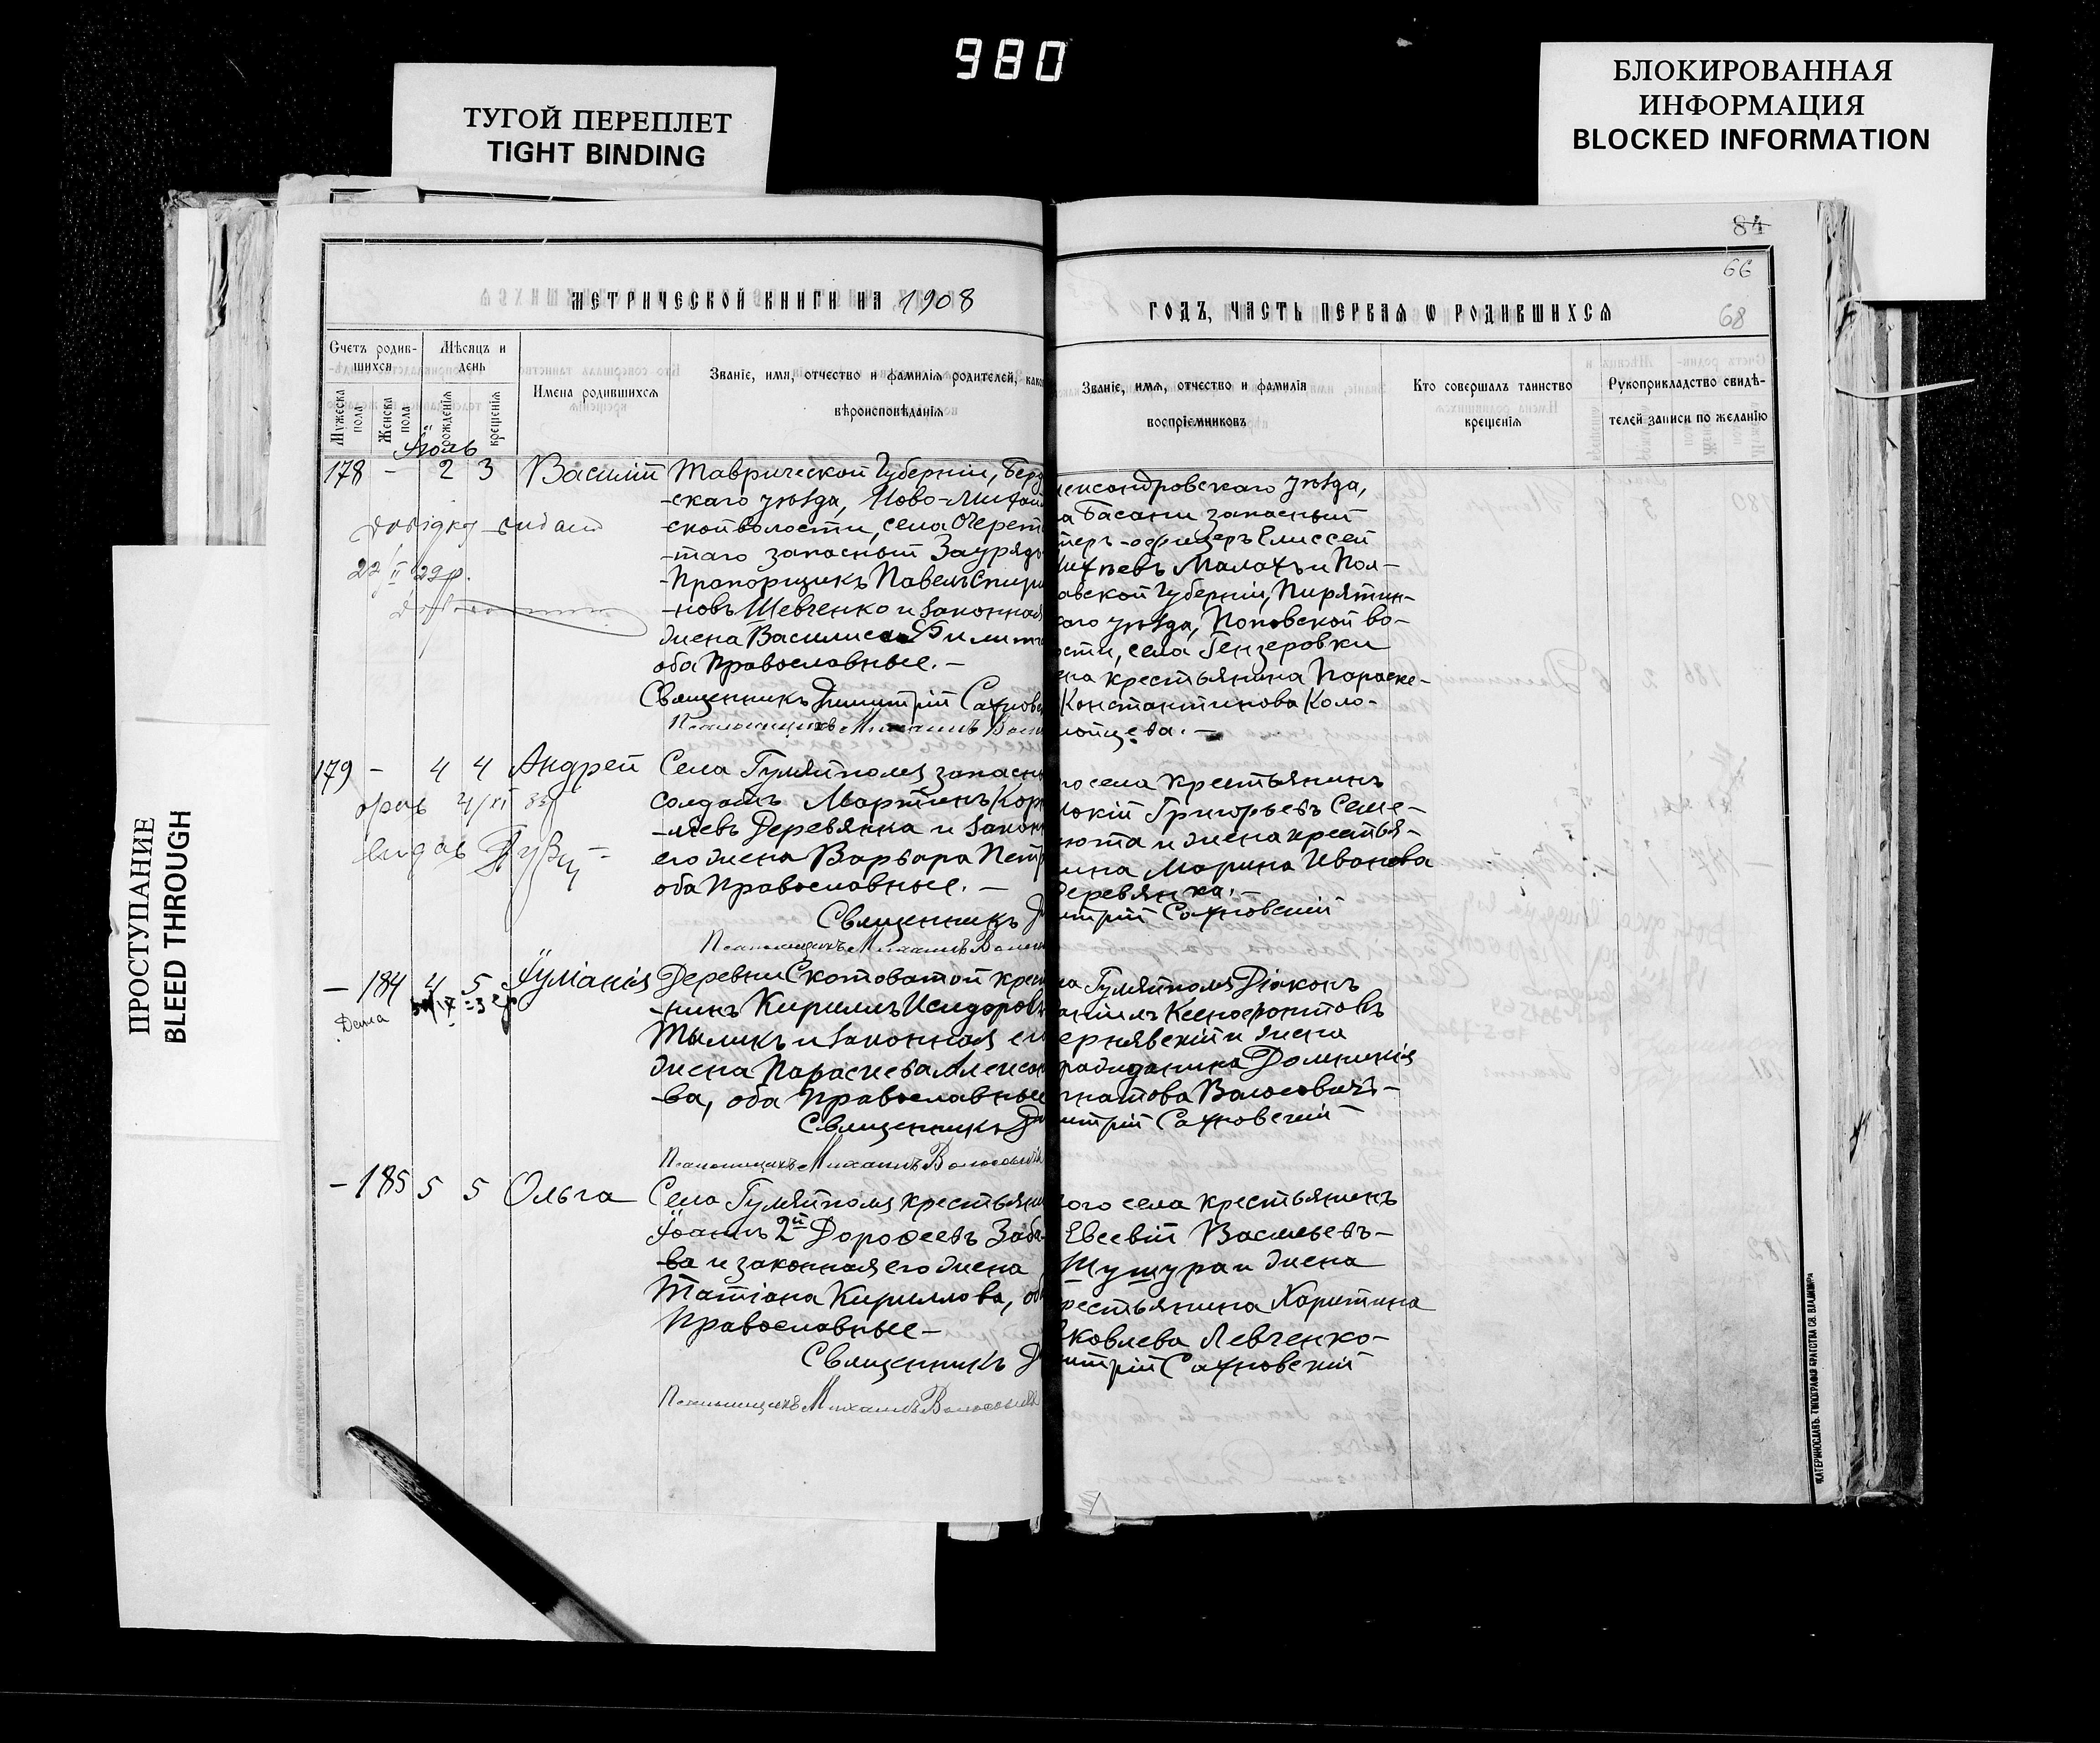 980
ТУГОЙ ПЕРЕПЛЕТ
TIGHT BINDING
БЛОКИРОВАННАЯ
ИНФОРМАЦИЯ
BLOCKED INFORMATION
ПРОСТУПАНИЕ
BLEED THROUGH
84
66
68
МЕТРИЧЕСКОЙ КНИГИ НА 1908
ГОДЪ, ЧАСТЬ ПЕРВАЯ Ѡ РОДИВШИХСЯ
Счетъ родив-
шихся
Мѣсяцъ и
день
Мужеска
пола
Женска
пола
рожденія
крещенія
Имена родившихся
Званіе, имя, отчество и фамилія родителей, како
вѣроисповѣданія
Званіе, имя, отчество и фамилія
воспріемниковъ
Кто совершалъ таинство
крещенія
Рукоприкладство свидѣ-
телей записи по желанію
Іюль
178 - 2 3 Василій
Таврической Губерніи, Берд
-скаго уѣзда, Ново-Михай
ской волости, села Очерет
-таго запасный Заурядъ
-Прапорщикъ Павелъ Спири
-новъ Шевченко и законная
жена Василиса
оба Православные. -
Священникъ Димитрій Сахновс
Псаломщикъ Михаилъ Воло
лександровскаго уѣзда,
а Басани запасный
теръ-офицеръ Елиссей
Малахъ и Пол-
авской Губерніи, Пирятин-
каго уѣзда, Поповской во-
ости, села Гензеровки
на крестьянина Параске-
Константинова Коло-
мойцева. -
довідку видано
22/II 29р.
179 - 4 4 Андрей
Села Гуляйполя запасны
солдатъ Мартинъ Кор
-лѣевъ Деревянка и закон
его жена Варвара Петр
оба Православные. -
Священникъ Д
Псаломщикъ Михаилъ Волос
го села крестьянинъ
Григорьевъ Семе-
нюта и жена крестья-
нина Марина Иванова
Деревянка. -
митрій Сахновскій
видав
- 184 4 5 Іуліанія
Деревни Скотоватой крест
-нинъ Кириллъ Исидоровъ
Тыликъ и законная ег
жена Параскева Алексан
-ва, оба Православные
Священникъ Дм
Псаломщикъ Михаилъ Волосовичъ
ла Гуляйполя Діаконъ
аніилъ Ксенофонтовъ
ернявскій и жена
гражданина Домникія
гнатова Волосовичъ -
итрій Сахновскій
- 185 5 5 Ольга
Села Гуляйполя крестьяни
Іоаннъ 2й Дорофеевъ Заба
-ва и законная его жена
Татіана Кириллова, об
Православные -
Священникъ Д
Псаломщикъ Михаилъ Волосовичъ
ого села крестьянинъ
Евсевій Васильевъ -
Шушура и жена
рестьянина Харитина
Яковлева Левченко -
митрій Сахновскій
ЕКАТЕРИНОСЛАВЪ. ТИПОГРАФІЯ БРАТСТВА СВ. ВЛАДИМІРА